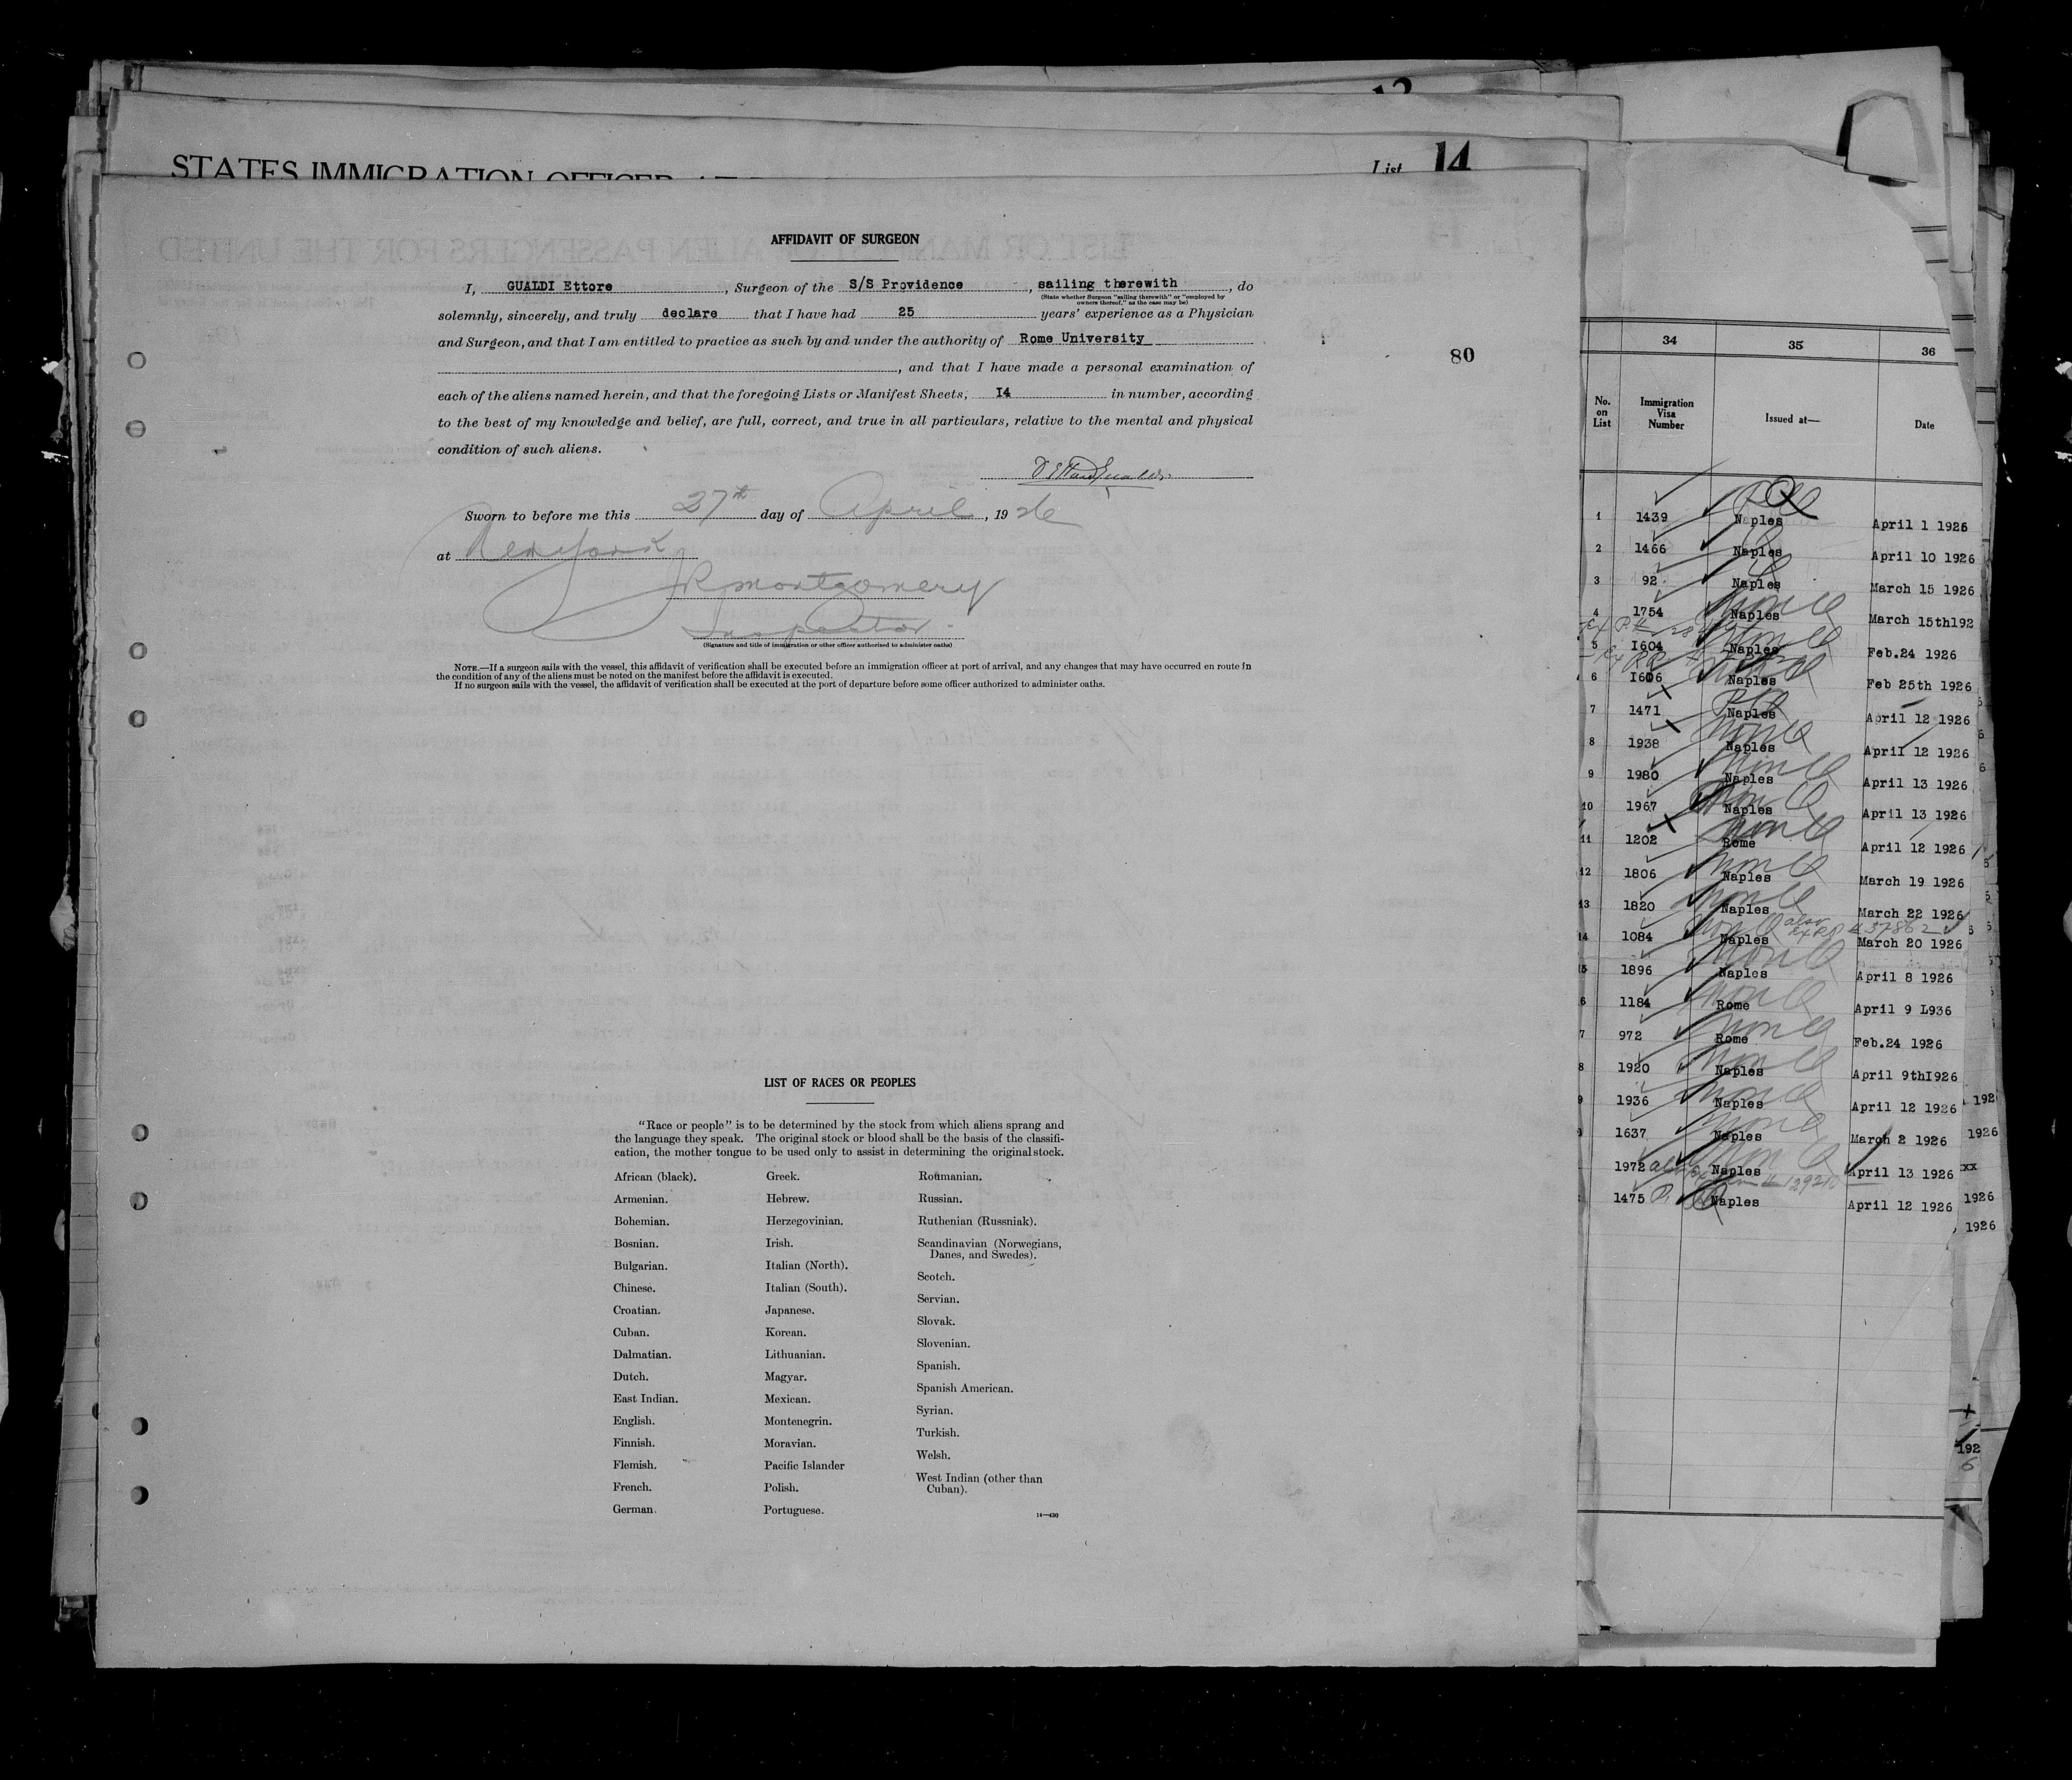 12
STATES IMMIGRATION OFFICER
List 14
AFFIDAVIT OF SURGEON
I, GUALDI Ettore, Surgeon of the S/S Providence, sailing therewith, do
(State whether Surgeon "sailing therewith" or "employed by
owners thereof," as the case may be)
solemnly, sincerely, and truly declare that I have had 25 years' experience as a Physician
and Surgeon, and that I am entitled to practice as such by and under the authority of Rome University
, and that I have made a personal examination of
each of the aliens named herein, and that the foregoing Lists or Manifest Sheets, I4 in number, according
to the best of my knowledge and belief, are full, correct, and true in all particulars, relative to the mental and physical
condition of such aliens.
Sworn to before me this 27th day of April, 1926
at New York
JR Montgomery
Inspector
(Signature and title of immigration or other officer authorized to administer oaths)
NOTE.—If a surgeon sails with the vessel, this affidavit of verification shall be executed before an immigration officer at port of arrival, and any changes that may have occurred en route in
the condition of any of the aliens must be noted on the manifest before the affidavit is executed.
If no surgeon sails with the vessel, the affidavit of verification shall be executed at the port of departure before some officer authorized to administer oaths.
80
LIST OF RACES OR PEOPLES
"Race or people" is to be determined by the stock from which aliens sprang and
the language they speak. The original stock or blood shall be the basis of the classifi-
cation, the mother tongue to be used only to assist in determining the original stock.
African (black).
Armenian.
Bohemian.
Bosnian.
Bulgarian.
Chinese.
Croatian.
Cuban.
Dalmatian.
Dutch.
East Indian.
English.
Finnish.
Flemish.
French.
German.
Greek.
Hebrew.
Herzegovinian.
Irish.
Italian (North).
Italian (South).
Japanese.
Korean.
Lithuanian.
Magyar.
Mexican.
Montenegrin.
Moravian.
Pacific Islander
Polish.
Portuguese.
Roumanian.
Russian.
Ruthenian (Russniak).
Scandinavian (Norwegians,
Danes, and Swedes).
Scotch.
Servian.
Slovak.
Slovenian.
Spanish.
Spanish American.
Syrian.
Turkish.
Welsh.
West Indian (other than
Cuban).
14—430
34 35 36
No. on List Immigration Visa Number Issued at— Date
1 1439 Naples April 1 1926
2 1466 Naples April 10 1926
3 92 Naples March 15 1926
4 1754 Naples March 15th192
5 I604 Naples Feb.24 1926
6 I606 Naples Feb 25th 1926
7 1471 Naples April 12 1926
8 1938 Naples April 12 1926
9 1980 Naples April 13 1926
10 1967 Naples April 13 1926
11 1202 Rome April 12 1926
12 1806 Naples March 19 1926
13 1820 Naples March 22 1926
14 1084 Naples March 20 1926
15 1896 Naples April 8 1926
6 1184 Rome April 9 L936
7 972 Rome Feb.24 1926
8 1920 Naples April 9thI926
9 1936 Naples April 12 1926
1637 Naples March 2 1926
1972 Naples April 13 1926
1475 Naples April 12 1926
192
1926
xx
1926
1926
192
6